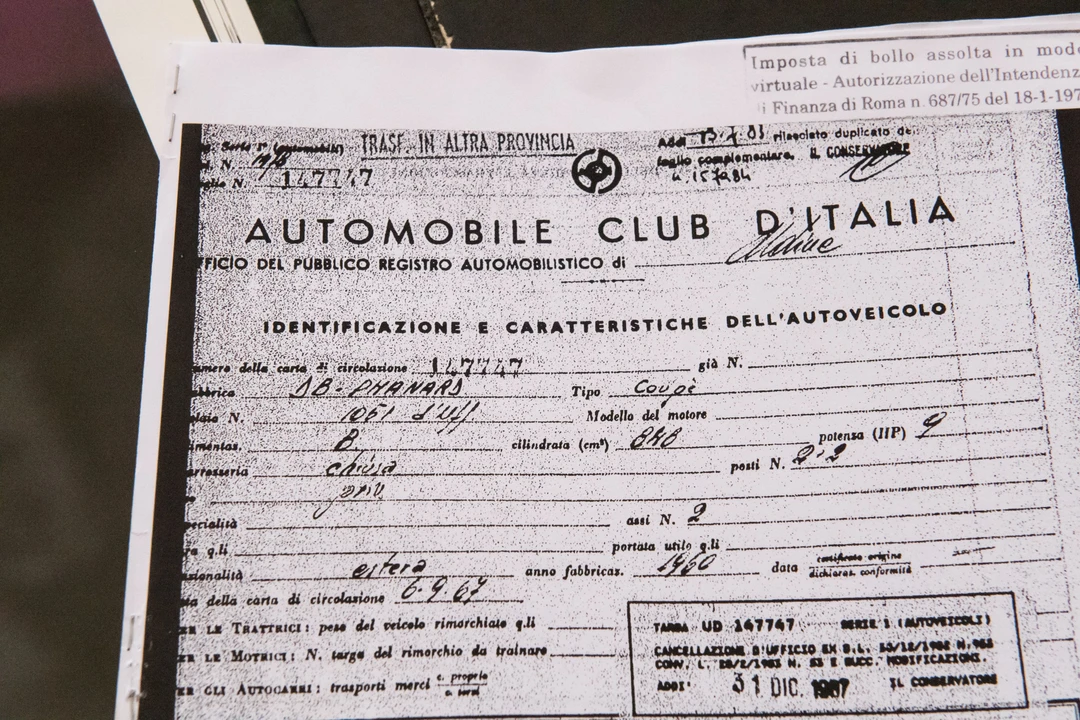 Imposta di bollo assolta in mod
virtuale - Autorizzazione dell'Intendenz
i Finanza di Roma n. 687/75 del 18-1-197
TRASF. IN ALTRA PROVINCIA
Serie 1ª (automobili)
N.
N. 147747
Addì 13.7.83 rilasciato duplicato del
foglio complementare. IL CONSERVATORE
AUTOMOBILE CLUB D'ITALIA
FFICIO DEL PUBBLICO REGISTRO AUTOMOBILISTICO di Udine
IDENTIFICAZIONE E CARATTERISTICHE DELL'AUTOVEICOLO
umero della carta di circolazione 147747 già N.
bbrica DB-PHANARD Tipo Coupè
laio N. 1051 d'Uff Modello del motore
imentaz. B cilindrata (cm³) 848 potenza (HP) 9
arrosseria chiusa posti N. 2+2
priv
pecialità assi N. 2
ra q.li portata utile q.li
zionalità estera anno fabbricaz. 1960 data certificato origine
dichiaraz. conformità
ta della carta di circolazione 6.9.67
ER LE TRATTRICI: peso del veicolo rimorchiato q.li
ER LE MOTRICI: N. targa del rimorchio da trainare
ER GLI AUTOCARRI: trasporti merci c. proprio
c. terzi
TARGA UD 147747 SERIE 1 (AUTOVEICOLI)
CANCELLAZIONE D'UFFICIO EX D.L. 30/12/1982 N. 953
CONV. L. 28/2/1983 N. 53 E SUCC. MODIFICAZIONI.
ADDI' 31 DIC. 1987 IL CONSERVATORE